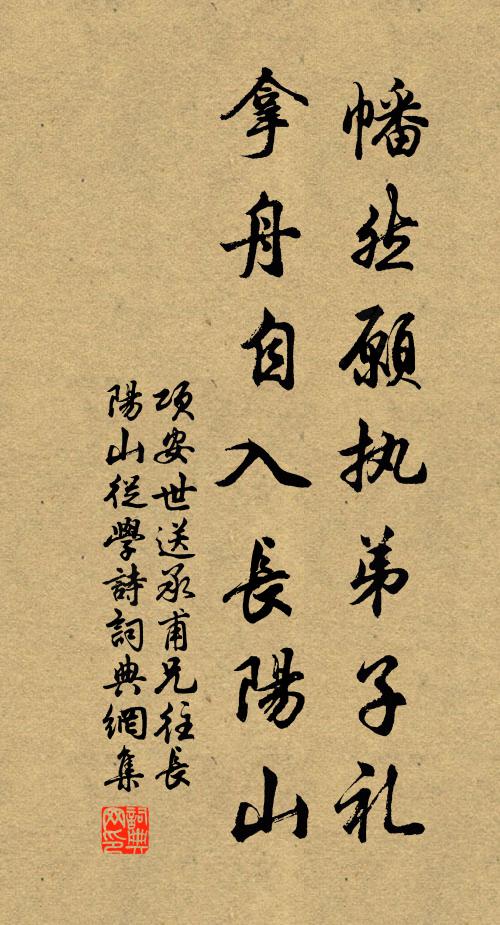 幡然願执弟子礼
拿舟自入長陽山
項安世送承甫兄往長
陽山從學詩詞典網集
詞典
网印